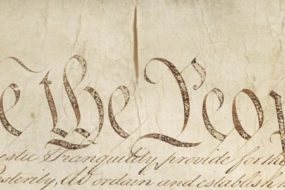 e the Peo
estic Tranquility, provide for the
osterity, do ordain and establish